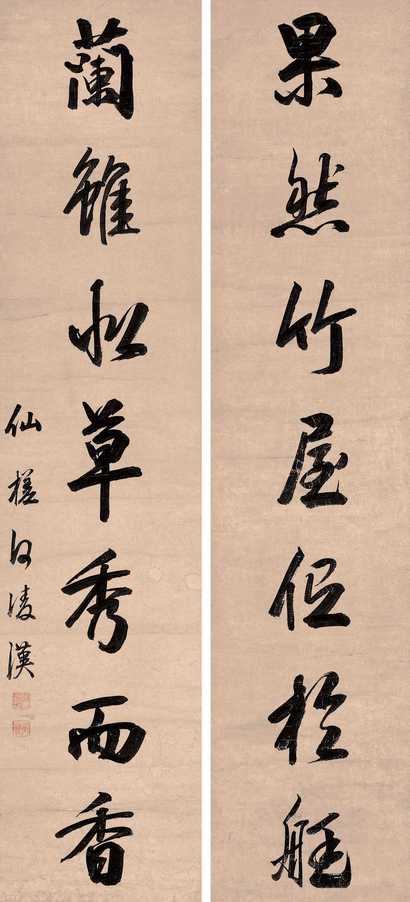 果然竹屋低於艇
蘭雖似草秀而香
仙槎何凌漢